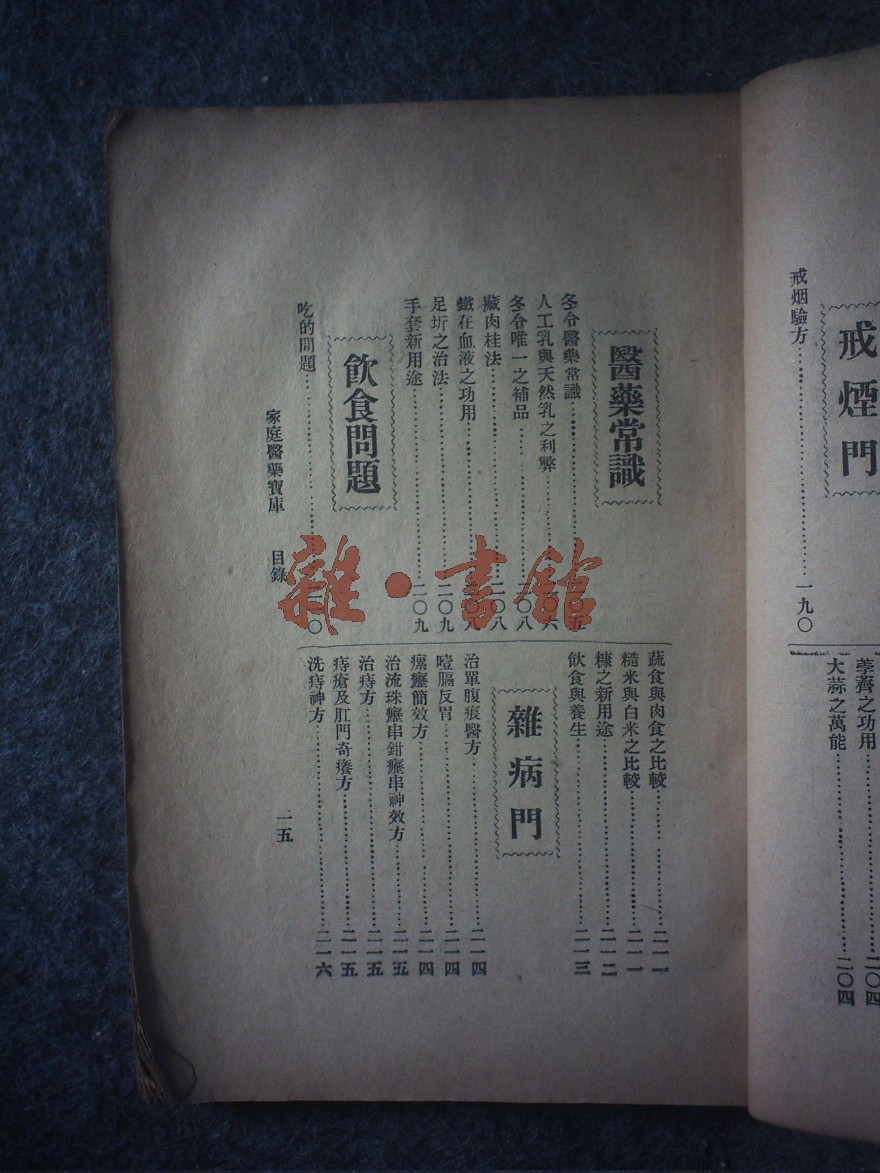 戒煙門
戒烟驗方……一九〇
荸薺之功用……二〇四
大蒜之萬能……二〇四
醫藥常識
冬令醫藥常識……二〇五
人工乳與天然乳之利弊……二〇六
冬令唯一之補品……二〇八
藏肉桂法……二〇八
鐵在血液之功用……二〇八
足圻之治法……二〇九
手套新用途……二〇九
飲食問題
吃的問題……二一〇
蔬食與肉食之比較……二一一
糙米與白米之比較……二一一
糠之新用途……二一二
飲食與養生……二一三
雜病門
治單腹痕醫方……二一四
噎膈反胃……二一四
瘰癧簡效方……二一四
治流珠癧串鉗癧串神效方……二一五
治痔方……二一五
痔瘡及肛門奇癢方……二一五
洗痔神方……二一六
家庭醫藥寶庫 目錄
一五
雜·書館